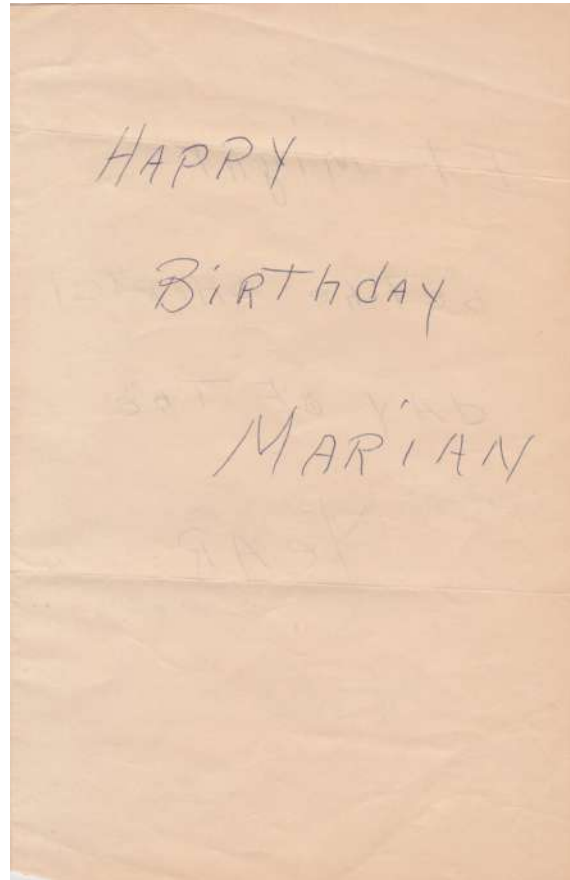 HAPPY
BiRThdAY
MARiAN